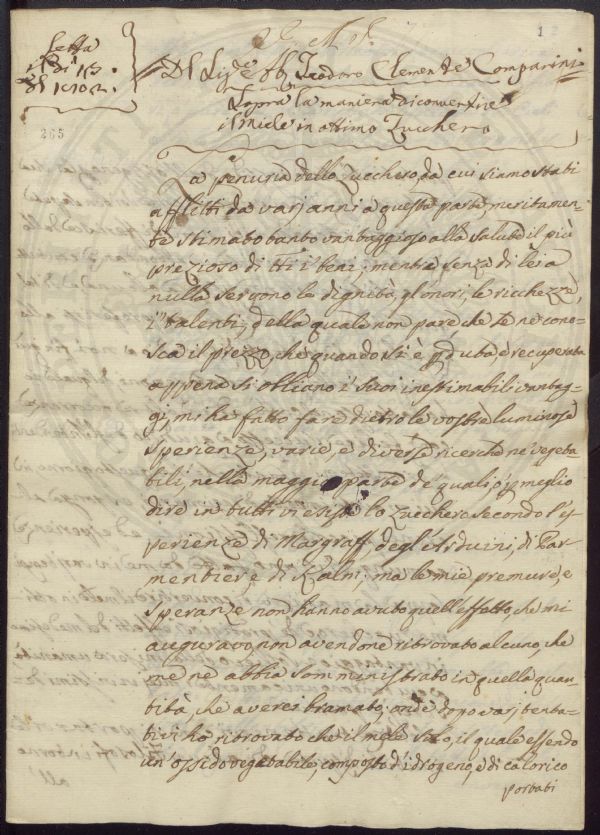 12
M. M.
Letta
il dì 13.
265
Del Sig.e Ab. Teodoro Clemente Comparini
Sopra la maniera di convertire
il Miele in ottimo Zucchero
La penuria dello Zucchero, da cui siamo stati
afflitti da varj anni a questa parte, meritamen-
te stimato tanto vantaggioso alla salute il più
prezioso di tti i beni, mentre senza di lei a
nulla sergono le dignità, gl'onori, le ricchezze,
i talenti, della quale non pare che se ne cono-
sca il prezzo, che quando si è pduta e recuperata
appena si obliano i suoi inestimabili vantag-
gi, mi ha fatto fare dietro le vostre luminose
sperienze, varie, e diverse ricerche ne' vegeta-
bili, nella maggior parte de quali, o p meglio
dire in tutti vi esiste lo zucchero secondo l'es-
perienze di Margraff, degli Arduini, di Par-
mentier, e di Kalm; ma le mie premure, e
speranze non hanno avuto quell'effetto, che mi
auguravo non avendone ritrovato alcuno, che
me ne abbia somministrato in quella quan-
tità, che averei bramato; onde dopo varj tenta-
tivi ho ritrovato che il mele solo, il quale essendo
un' ossido vegetabile, composto d'idrogeno, e di calorico
portati